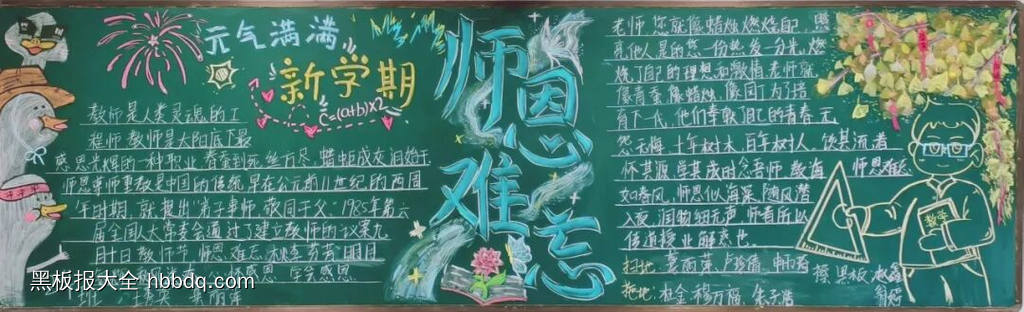 元气满满
新学期
C=(a+b)×2
教师是人类灵魂的工
程师教师是太阳底下最
感恩光辉的一种职业春蚕到死丝方尽蜡炬成灰泪始干
师恩尊师重教是中国的传统早在公元前11世纪的西周
年时期，就提出"弟子事师，敬同于父"1985年第六
届全国人大常委会通过了建立教师的议案九
月十日教师节师恩难忘桃李芬芳
感恩 学会感恩
师恩难忘
老师您就像蜡烛燃烧自 照
其他人是的您一份热发一分光燃
烧了自己的理想和激情老师就
像青蚕像蜡烛像园丁为了培
育下一代，他们奉献自己的青春无
怨无悔 十年树木，百年树人，饮其流者
怀其源学其成时念吾师教诲 师恩难忘
如春风，师恩似海深随风潜
入夜，润物细无声，师者所以
传道授业解惑也
扫地
擦黑板
拖地：
数学
黑板报大全 hbbdq.com